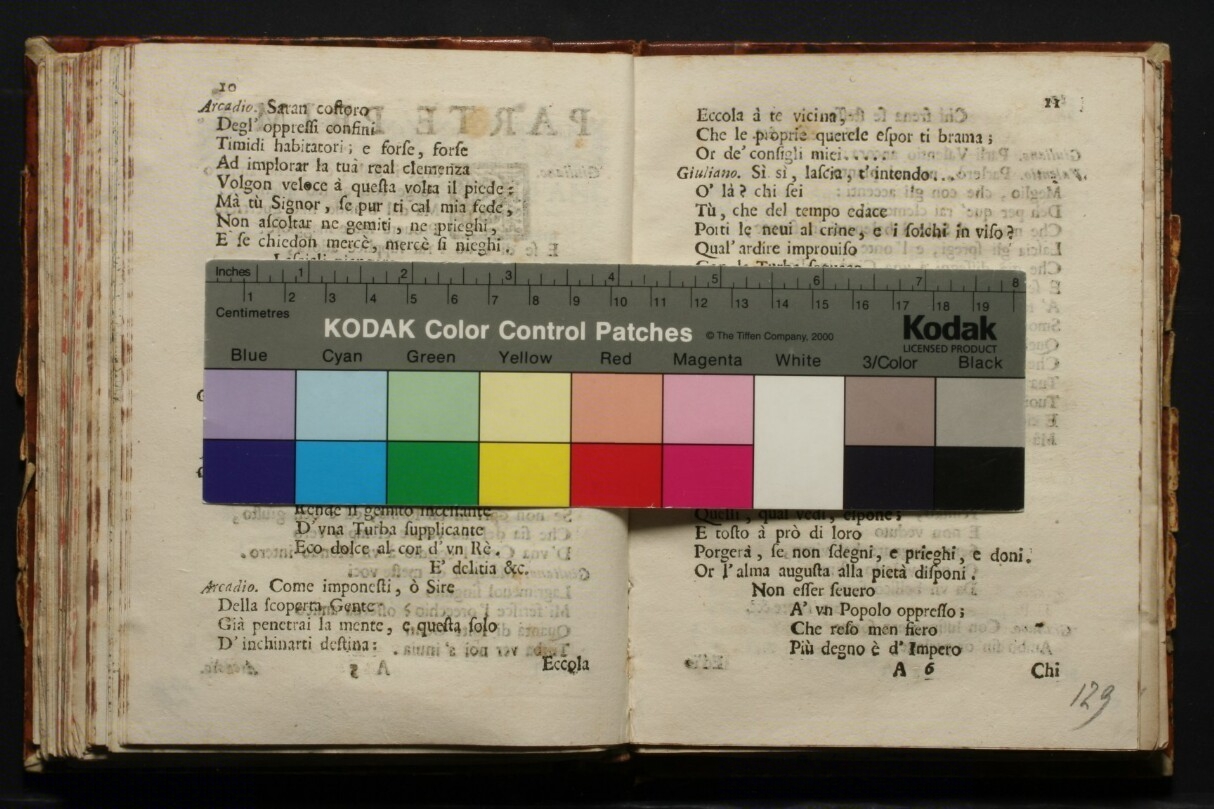 10
Arcadio. Saran coſtoro
Degl' oppreſſi confini
Timidi habitatori; e forſe, forſe
Ad implorar la tua real clemenza
Volgon veloce à queſta volta il piede:
Mà tù Signor, ſe pur ti cal mia fede,
Non aſcoltar ne gemiti, ne prieghi,
E ſe chiedon mercè, mercè ſi nieghi.
Inches 1 2 3 4 5 6 7 8
1 2 3 4 5 6 7 8 9 10 11 12 13 14 15 16 17 18 19
Centimetres
KODAK Color Control Patches © The Tiffen Company, 2000
Kodak
LICENSED PRODUCT
Blue Cyan Green Yellow Red Magenta White 3/Color Black
Rende il gemito inceſſante
D'vna Turba ſupplicante
Eco dolce al cor d'vn Rè.
E' delitia &c.
Arcadio. Come imponeſti, ò Sire
Della ſcoperta Gente
Già penetrai la mente, e queſta ſolo
D'inchinarti deſtina:
Eccola
11
Eccola à te vicina,
Che le proprie querele eſpor ti brama;
Or de' conſigli miei.....
Giuliano. Sì sì, laſcia, t'intendo...
O' là? chi ſei
Tù, che del tempo edace
Porti le neui al crine, e i ſolchi in viſo?
Qual' ardire improuiſo
Quelli, qual vedi, eſpone;
E toſto à prò di loro
Porgerà, ſe non ſdegni, e prieghi, e doni.
Or l'alma auguſta alla pietà diſponi.
Non eſſer ſeuero
A' vn Popolo oppreſſo;
Che reſo men fiero
Più degno è d'Impero
A 6 Chi
129